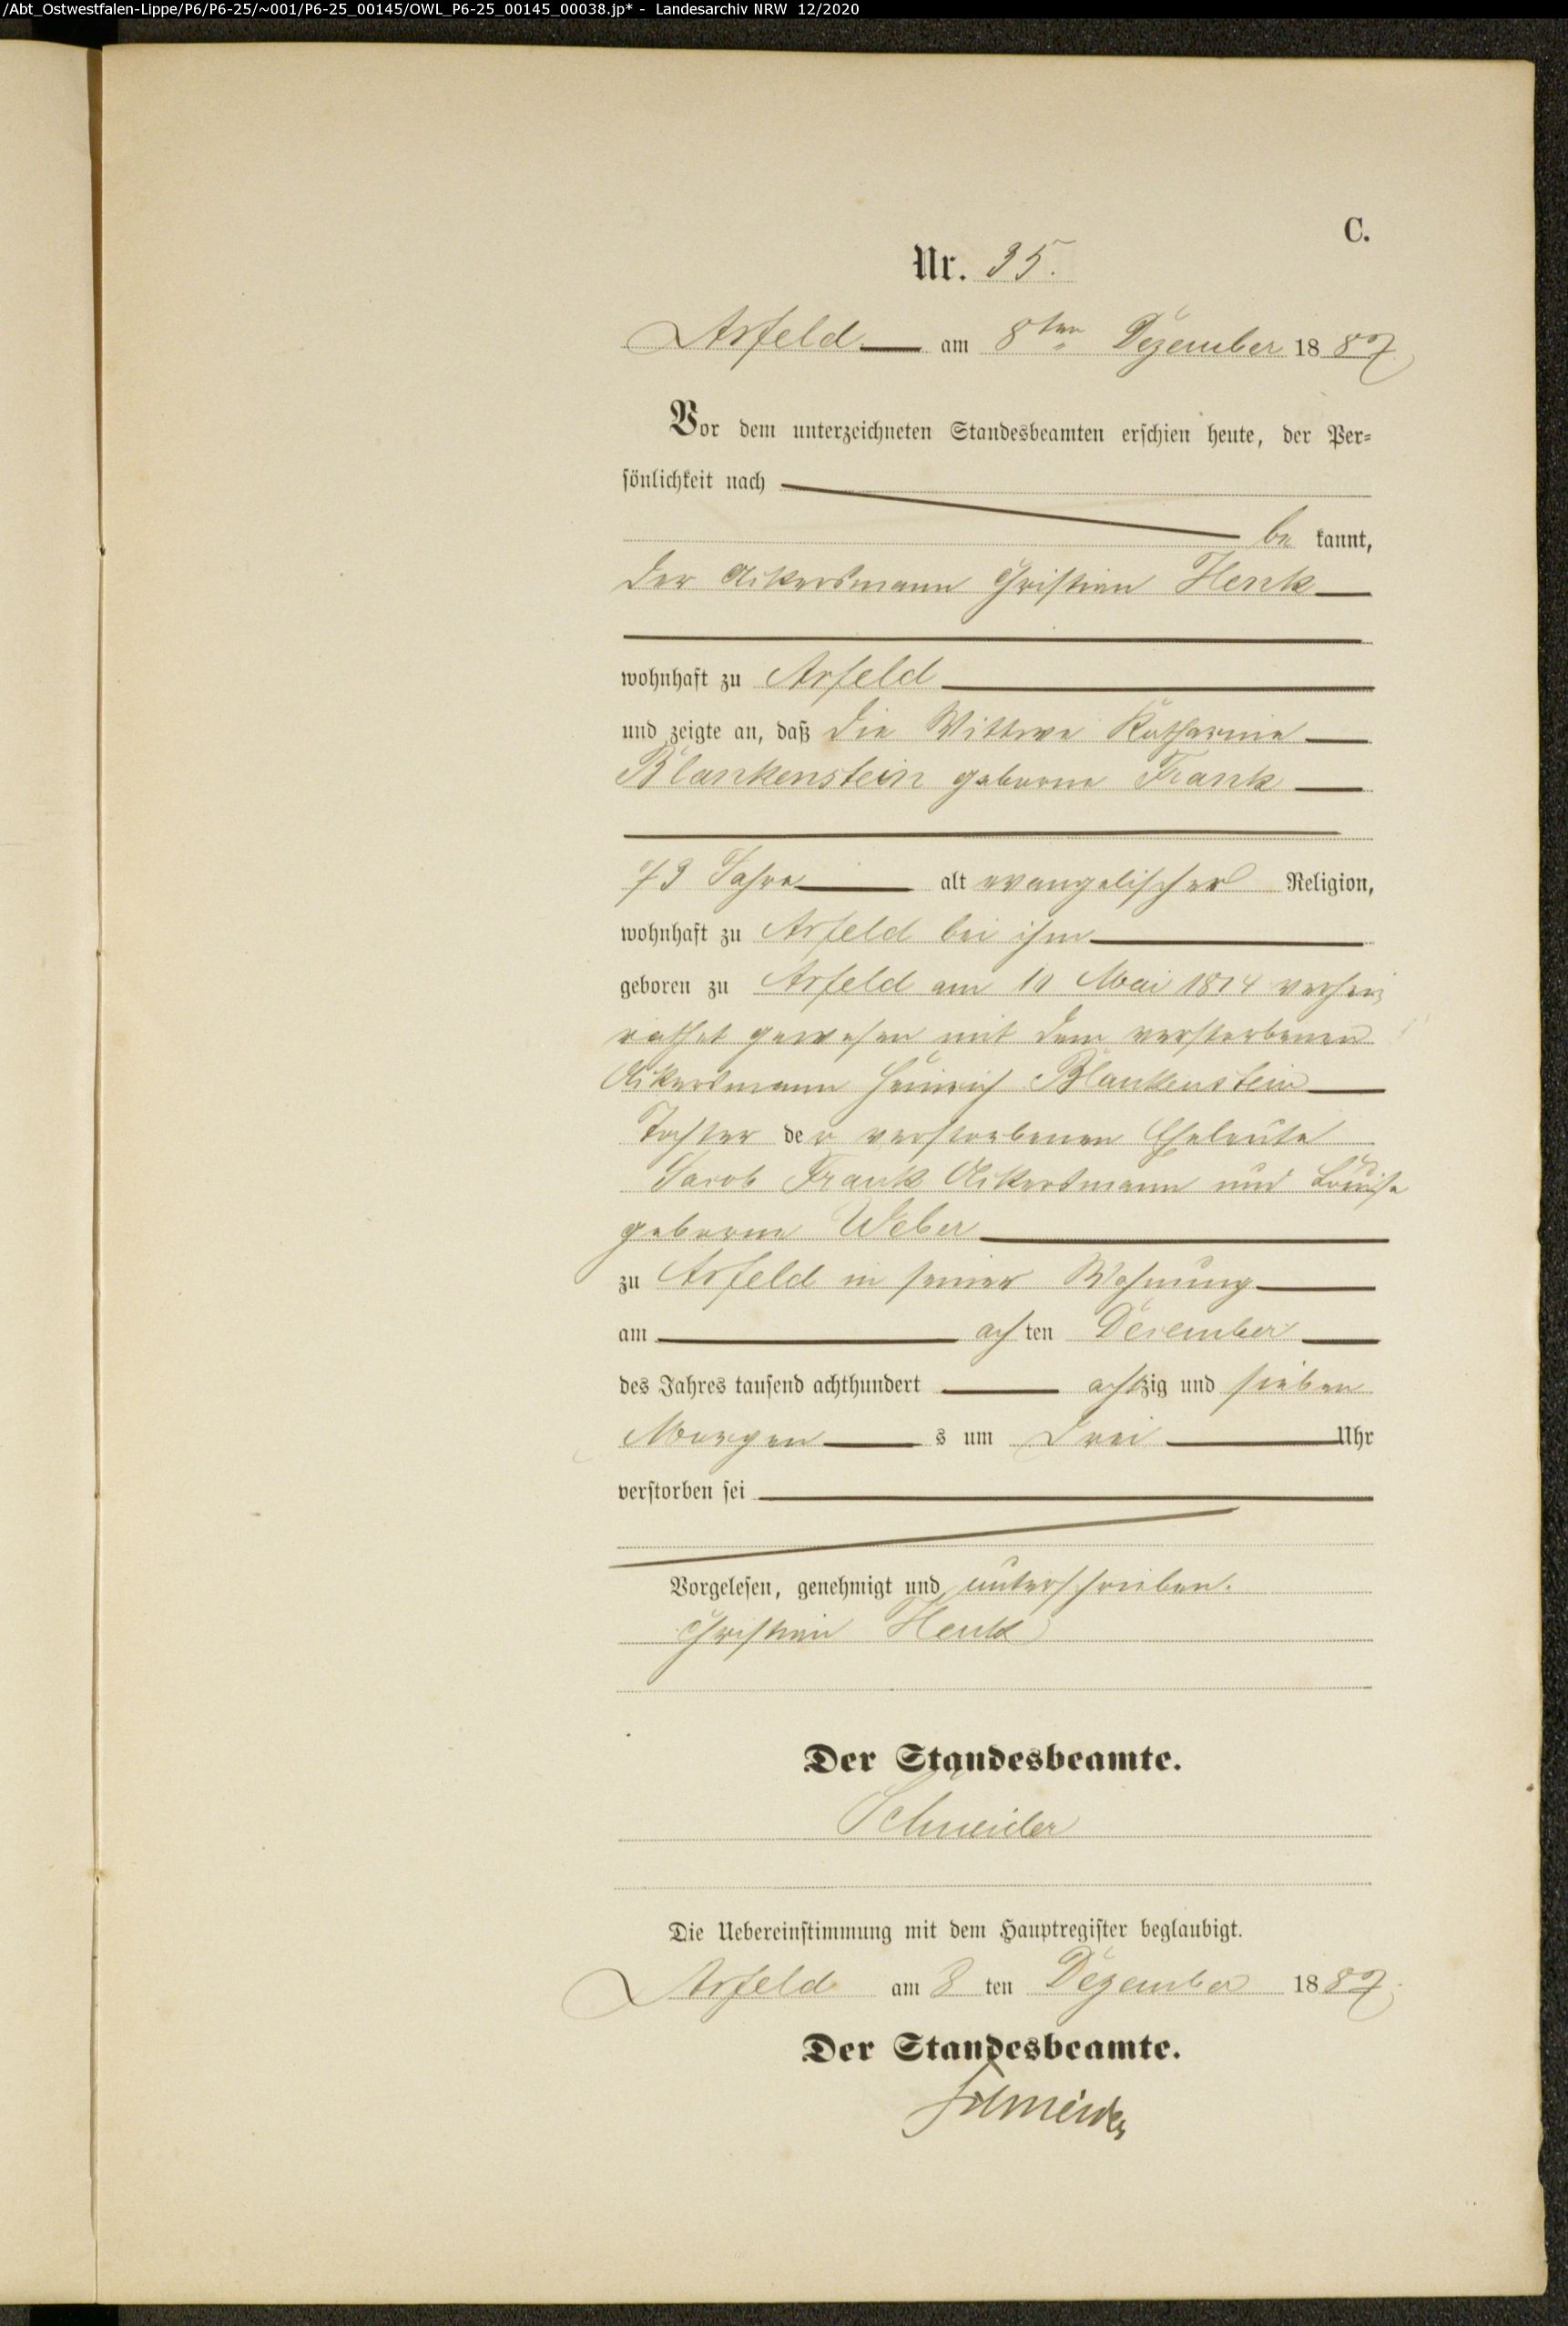 /Abt_Ostwestfalen-Lippe/P6/P6-25/~001/P6-25_00145/OWL_P6-25_00145_00038.jp* - Landesarchiv NRW 12/2020
C.
Nr. 35.
Arfeld am 8ten Dezember 1887
Vor dem unterzeichneten Standesbeamten erschien heute, der Per=
sönlichkeit nach
be kannt,
der Ackersmann Christian Henk
wohnhaft zu Arfeld
und zeigte an, daß die Wittwe Katharine
Blankenstein geborne Frank
73 Jahre alt evangelischer Religion,
wohnhaft zu Arfeld bei ihm
geboren zu Arfeld am 11 Mai 1814 verhei
rathet gewesen mit dem verstorbenen
Ackersmann Heinrich Blankenstein
Tochter der verstorbenen Eheleute
Jacob Frank Ackersmann und Louise
geborne Weber
zu Arfeld in seiner Wohnung
am achten Dezember
des Jahres tausend achthundert achtzig und sieben
Morgens um drei Uhr
verstorben sei
Vorgelesen, genehmigt und unterschrieben.
Christian Henk
Der Standesbeamte.
Schneider
Die Uebereinstimmung mit dem Hauptregister beglaubigt.
Arfeld am 8 ten Dezember 1887
Der Standesbeamte.
Schneider